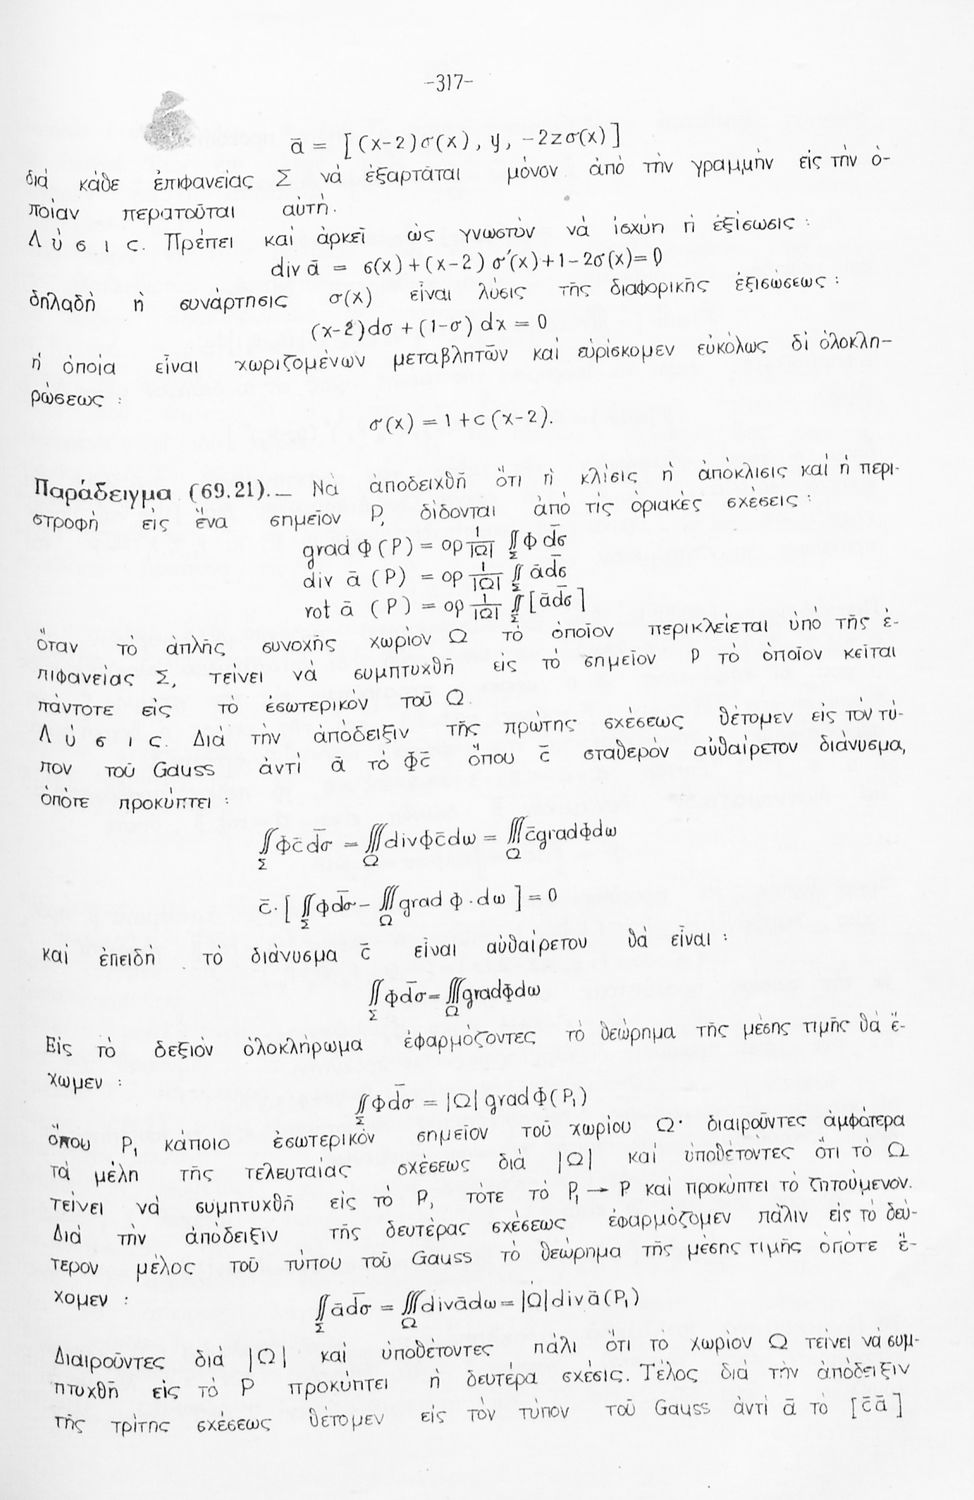 -317-
ā = [(x-2)σ(x), y, -2zσ(x)]
διά κάθε ἐπιφανείας Σ νά ἐξαρτᾶται μόνον ἀπό τήν γραμμήν εἰς τήν ὁ-
ποίαν περατοῦται αὐτή.
Λ ύ σ ι ς. Πρέπει καί ἀρκεῖ ὡς γνωστόν νά ἰσχύη ἡ ἐξίσωσις :
div ā = σ(x)+(x-2) σ′(x)+1-2σ(x)=0
δηλαδή ἡ συνάρτησις σ(x) εἶναι λύσις τῆς διαφορικῆς ἐξισώσεως :
(x-2)dσ + (1-σ) dx = 0
ἡ ὁποία εἶναι χωριζομένων μεταβλητῶν καί εὑρίσκομεν εὐκόλως δι ὁλοκλη-
ρώσεως :
σ(x) = 1+c(x-2).
Παράδειγμα (69.21).— Νά ἀποδειχθῆ ὅτι ἡ κλίσις ἡ ἀπόκλισις καί ἡ περι-
στροφή εἰς ἕνα σημεῖον P, δίδονται ἀπό τίς ὁριακές σχέσεις :
grad Φ(P) = ορ 1/|Ω| ∬_Σ Φ d̄σ
div ā (P) = ορ 1/|Ω| ∬_Σ ād̄σ
rot ā (P) = ορ 1/|Ω| ∬_Σ [ād̄σ]
ὅταν τό ἁπλῆς συνοχῆς χωρίον Ω τό ὁποῖον περικλείεται ὑπό τῆς ἐ-
πιφανείας Σ, τείνει νά συμπτυχθῆ εἰς τό σημεῖον P τό ὁποῖον κεῖται
πάντοτε εἰς τό ἐσωτερικόν τοῦ Ω.
Λ ύ σ ι ς. Διά τήν ἀπόδειξιν τῆς πρώτης σχέσεως θέτομεν εἰς τόν τύ-
πον τοῦ Gauss ἀντί ā τό Φc̄ ὅπου c̄ σταθερόν αὐθαίρετον διάνυσμα,
ὁπότε προκύπτει :
∬_Σ Φc̄d̄σ = ∭_Ω divΦc̄dω = ∭_Ω c̄gradΦdω
c̄·[∬_Σ Φd̄σ - ∭_Ω grad Φ·dω] = 0
καί ἐπειδή τό διάνυσμα c̄ εἶναι αὐθαίρετου θά εἶναι :
∬_Σ Φd̄σ = ∭_Ω gradΦdω
Εἰς τό δεξιόν ὁλοκλήρωμα ἐφαρμόζοντες τό θεώρημα τῆς μέσης τιμῆς θά ἔ-
χωμεν :
∬_Σ Φd̄σ = |Ω| gradΦ(P₁)
ὅπου P₁ κάποιο ἐσωτερικόν σημεῖον τοῦ χωρίου Ω· διαιροῦντες ἀμφότερα
τά μέλη τῆς τελευταίας σχέσεως διά |Ω| καί ὑποθέτοντες ὅτι τό Ω
τείνει νά συμπτυχθῆ εἰς τό P, τότε τό P₁ → P καί προκύπτει τό ζητούμενον.
Διά τήν ἀπόδειξιν τῆς δευτέρας σχέσεως ἐφαρμόζομεν πάλιν εἰς τό δεύ-
τερον μέλος τοῦ τύπου τοῦ Gauss τό θεώρημα τῆς μέσης τιμῆς ὁπότε ἔ-
χομεν :
∬_Σ ād̄σ = ∭_Ω divādω = |Ω|divā(P₁)
Διαιροῦντες διά |Ω| καί ὑποθέτοντες πάλι ὅτι τό χωρίον Ω τείνει νά συμ-
πτυχθῆ εἰς τό P προκύπτει ἡ δευτέρα σχέσις. Τέλος διά τήν ἀπόδειξιν
τῆς τρίτης σχέσεως θέτομεν εἰς τόν τύπον τοῦ Gauss ἀντί ā τό [c̄ā]